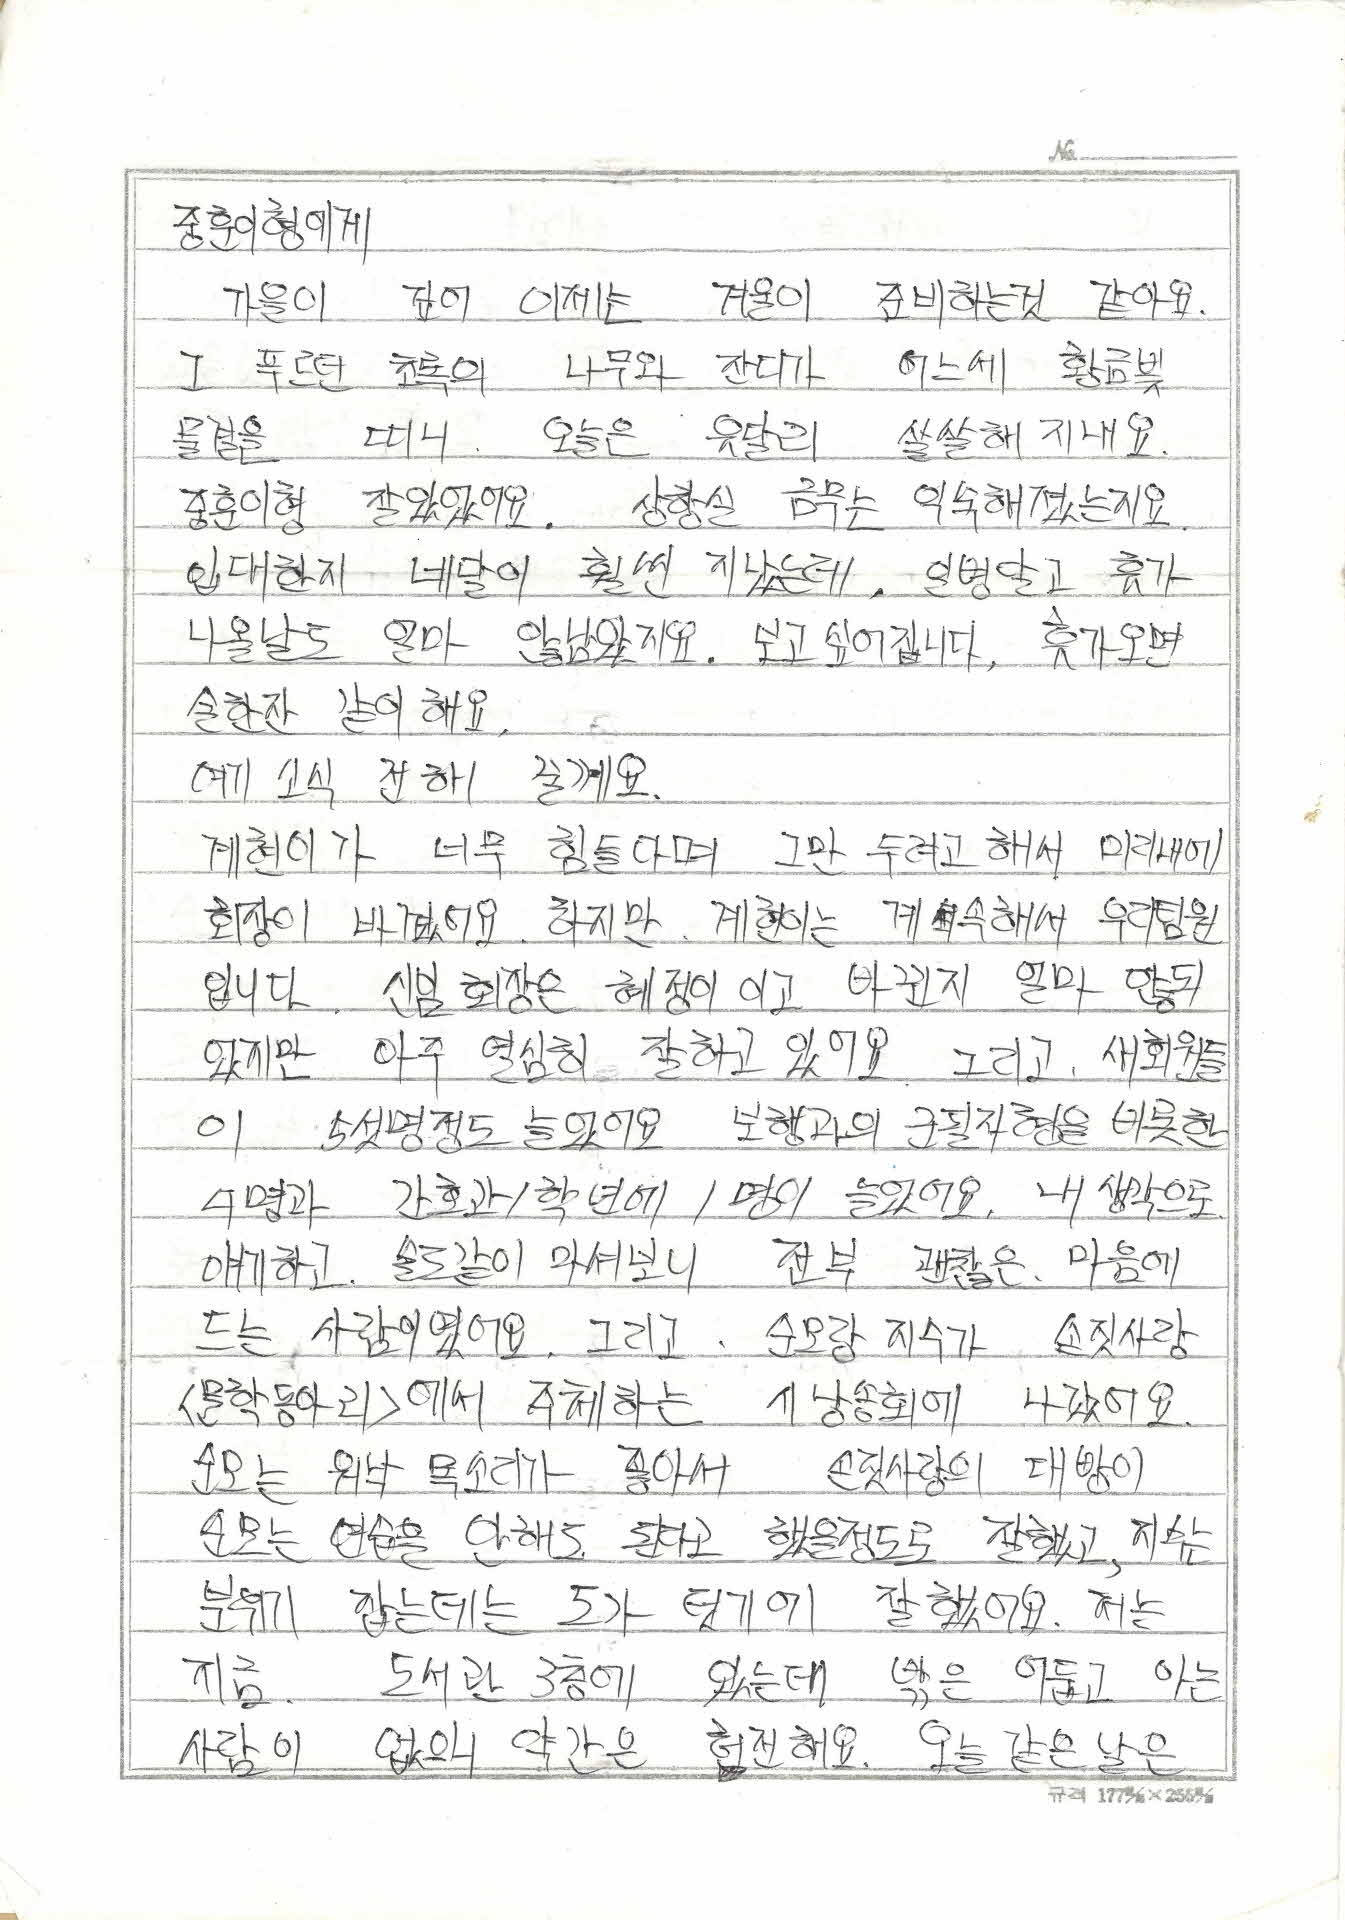 No.
중훈이형에게
가을이 깊어 이제는 겨울이 준비하는것 같아요.
그 푸르던 초록의 나무와 잔디가 어느세 황금빛
물결을 띠니. 오늘은 유달리 쓸쓸해 지내요.
중훈이형 잘있었어요. 상황실 금무는 익숙해졌는지요.
입대한지 네달이 훨씬 지났는데. 일병달고 휴가
나올날도 얼마 안남았지요. 보고싶어집니다. 휴가오면
술한잔 같이해요.
여기 소식 전해 줄께요.
계현이가 너무 힘들다며 그만 두려고 해서 미리내에
회장이 바꼈어요. 하지만. 계현이는 계속해서 우리팀원
입니다. 신임 회장은 혜정이 이고 바뀐지 얼마 안되
었지만 아주 열심히 잘하고 있어요. 그리고. 새회원들
이 5섯명정도 늘었어요 보행과의 군필자형을 비롯한
4명과 간호과1학년에 1명이 늘었어요. 내생각으로.
얘기하고. 술도같이 마셔보니 전부 괜찮은. 마음에
드는 사람이였어요. 그리고. 순모랑 지수가 손짓사랑
<문학동아리>에서 주체하는 시낭송회에 나갔어요.
순모는 워낙 목소리가 좋아서 손짓사랑의 대빵이
순모는 연습을 안해도 된다고 했을정도로 잘했고, 지수는
분위기 잡는데는 도가 텄기에 잘했어요. 저는
지금. 도서관 3층에 있는데 밖은 어둡고 아는
사람이 없으니 약간은 허전해요. 오늘같은날은
규격 177㎜×255㎜